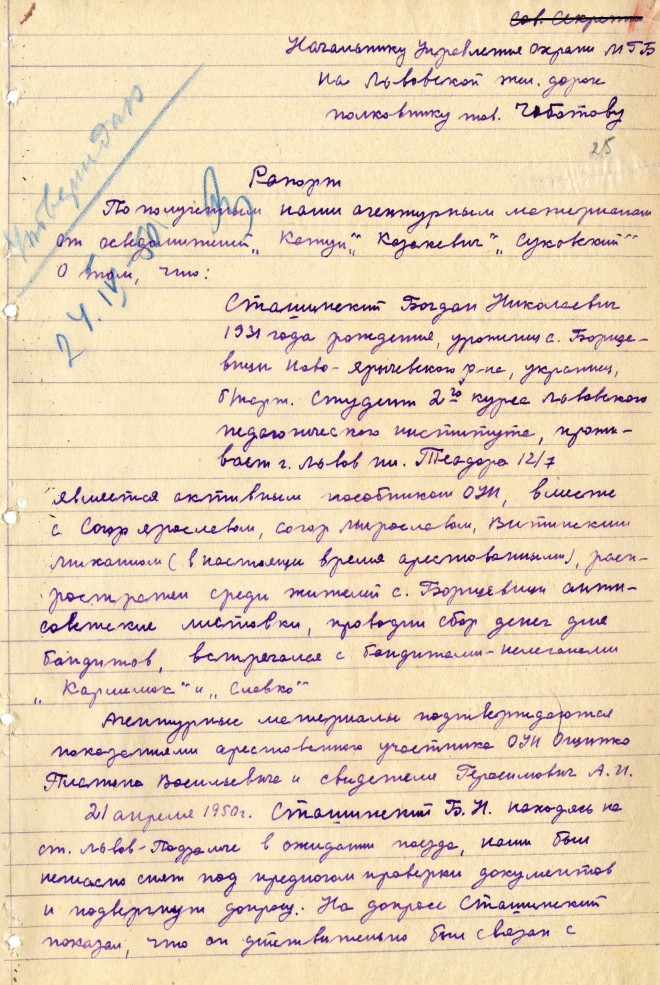 Сов. Секретно
Начальнику Управления Охраны МГБ
на Львовской жел. дороге
полковнику тов. Чеботову
25
Утверждаю
24.IV-50
Рапорт
По полученным нами агентурным материалам
от осведомителей „Катуи" „Казакевич" „Суховский"
о том, что:
Сташинский Богдан Николаевич
1931 года рождения, уроженец с. Борще-
вици Ново-Яричевского р-на, украинец,
б/парт. студент 2го курса Львовского
педагогического института, прожи-
вает г. Львов пл. Теодора 12/7
является активным пособником ОУН, вместе
с Согор Ярославом, Согор Мирославом,
Михаилом (в настоящи время арестованными), расп-
ространял среди жителей с. Борщевици анти-
советские листовки, проводил сбор денег для
бандитов, встречался с бандитами-нелегалами
„Кармелюк" и „Славко"
Агентурные материалы подтверждаются
показаниями арестованного участника ОУН Ощипко
Платона Васильевича и свидетеля Герасимович А. И.
21 апреля 1950г. Сташинский Б. Н. находясь на
ст. Львов-Подзамче в ожидании поезда, нами был
негласно снят под предлогом проверки документов
и подвергнут допросу. На допросе Сташинский
показал, что он действительно был связан с